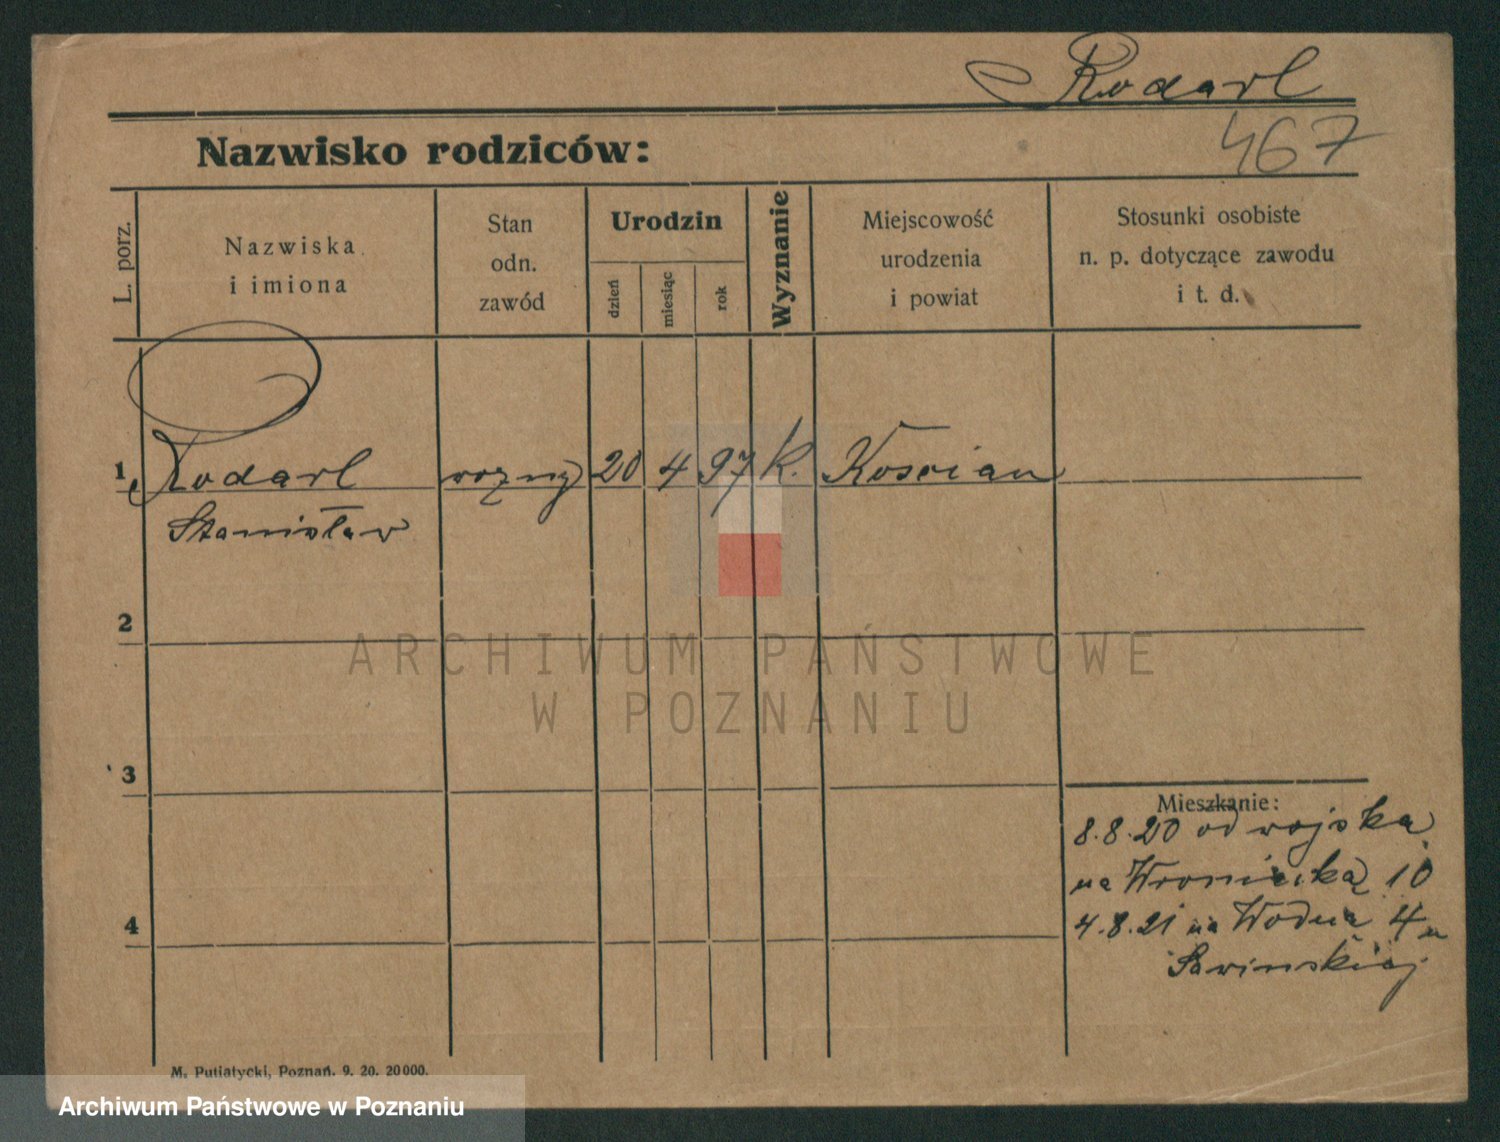 Rodarl
467
Nazwisko rodziców:
L. porz.
Nazwiska
i imiona
Stan
odn.
zawód
Urodzin
dzień
miesiąc
rok
Wyznanie
Miejscowość
urodzenia
i powiat
Stosunki osobiste
n. p. dotyczące zawodu
i t. d.
1 Rodarl 20 4 97 k. Kościan
Stanisław
2
3
4
Mieszkanie:
8.8.20 od wojska
na Wroniecką 10
4.8.21 na Wodna 4 u
Sawinskiej
M. Putiatycki, Poznań. 9. 20. 20000.
ARCHIWUM PAŃSTWOWE
W POZNANIU
Archiwum Państwowe w Poznaniu